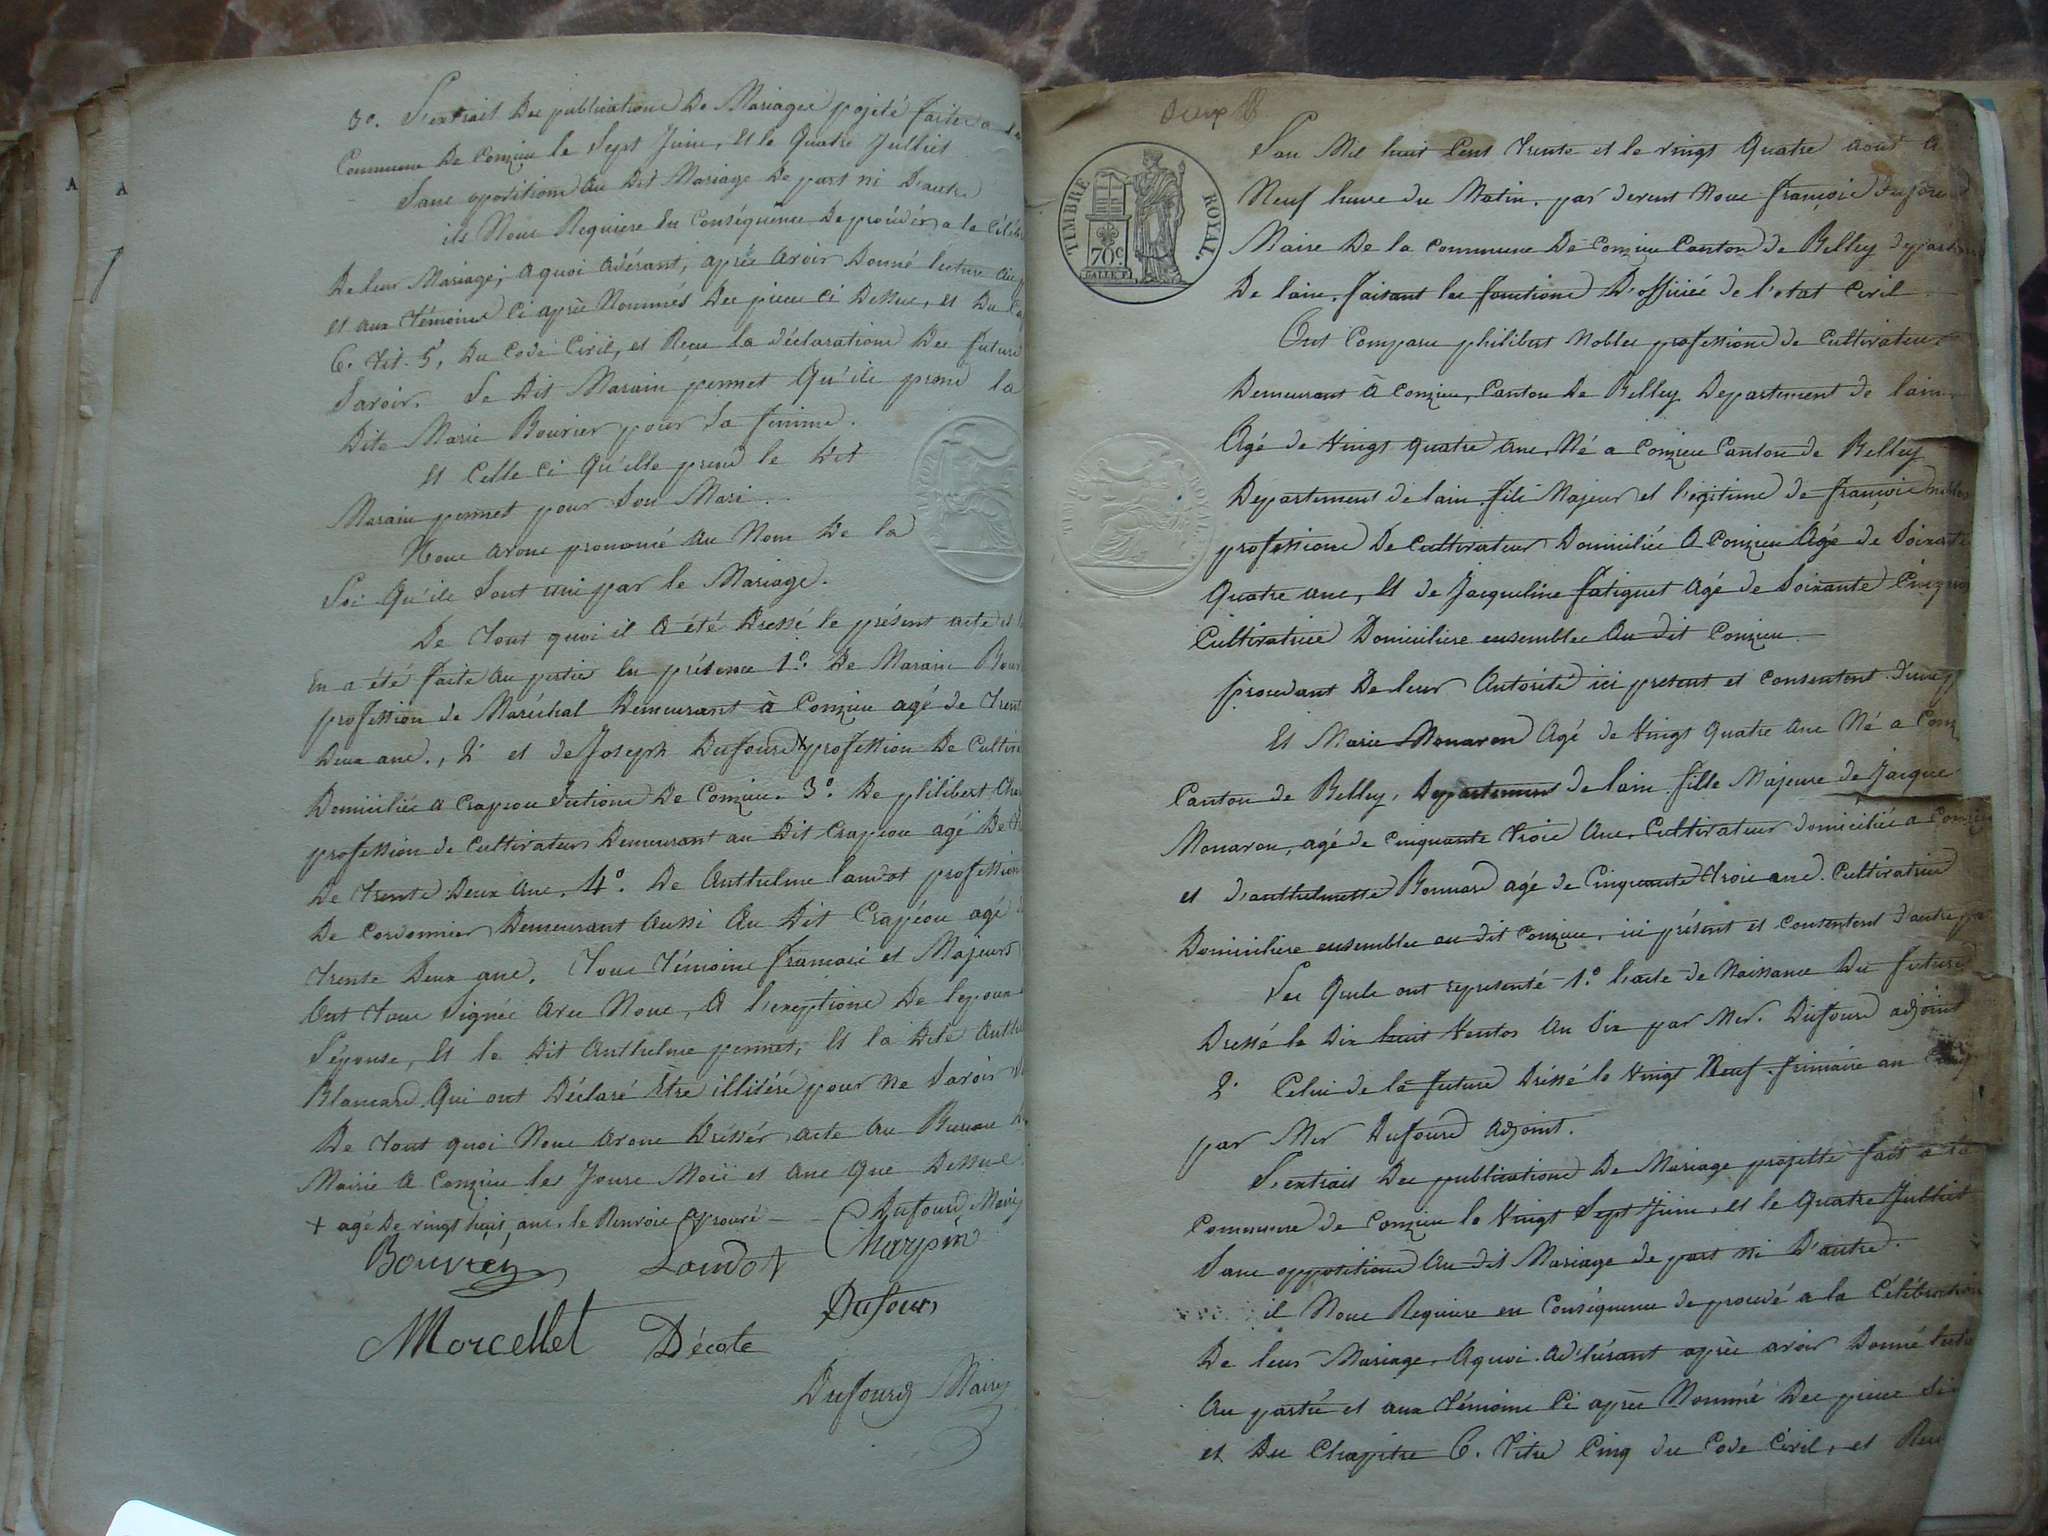 3º. L'extrait Des publications De Mariages pojeté faites a
Commune De Conzieu le Sept Juin, et le Quatre Julliet
Sans oposition Au Dit Mariage De part ni D'autre
ils Nous Requiere En Conséquence De procéder a la
De leur Mariage; a quoi adérant, après avoir Donné lecture
et aux témoins Ci après Nommés Des pieces Ci Dessus, et Du
6. tit. 5, Du Code Civil, et Recu la déclaration Des futurs
Savoir. Le Dit Marain pernet Qu'ils prend la
Dite Marie Bouvier pour Sa femme.
et Celle Ci Qu'elle prend le Dit
Marain pernet pour Son Mari
Nous avons prononcé Au Nom De la
Loi Qu'ils Sont uni par le Mariage.
De Tout quoi il a été Dressé le présent acte et
En a été faite Au partie En présence 1º. De Marain
profession de Maréchal Demeurant à Conzieu agé de Trente
Deux ans., 2º et de Joseph Dufourd + profession De
Domiciliée a Crapeou Section De Conzieu. 3º. De philibert
profession de Cultivateur Demeurant au Dit Crapeou agé De
De Trente Deux Ans, 4º. De Anthelme landot profession
De Cordonnier Demeurant Aussi Au Dit Crapéou agé
trente Deux ans, Tous Témoins francais et Majeurs
Ont Tous Signés Avec Nous, A l'exeption De lepoux
L'épouse, Et le Dit Anthelme pernet, Et la Dite
Blancard Qui ont Déclaré Être illitéré pour Ne Savoir
De tout quoi Nous avons Dressér acte Au Bureau
Mairie A Conzieu les Jours Mois et ans Que Dessus
+ agé De vingt huit, ans, le Renvoie aprouvé Dufourd Maire
Bouvier Landot Charpin
Morcellet Décote Dufour
Dufourd Maire
Deux
TIMBRE ROYAL
70c
L'an Mil huit Cent trente et le vingt Quatre aout A
Neuf heure du Matin, par devent Nous françois Dufourd
Maire De la Commune De Conzieu Canton de Belley
De lain, faisant les fonctions D'officiée de l'etat Civil
Ont Comparu philibert Nobles profession de Cultivateur
Demeurant à Conzieu, Canton De Belley Departement de lain
Agé de Vingt quatre Ans, Né a Conzieu Canton de Belley
Departement de lain fils Majeur et légitime de françois
profession De Cultivateur Domiciliée A Conzieu Agé de Soixante
Quatre ans, Et de Jacqueline fatiguet Agé de Soixante
Cultivatrice Domiciliere ensembles Au dit Conzieu.
procedant De leur Autorité ici present et consentent
Et Marie Monavon Agé de Vingt Quatre Ans Né a
Canton de Belley, Departement de lain fille Majeure de Jacque
Monavon, agé de Cinquante trois Ans, Cultivateur domiciliée a
et d'anthelmette Bonnard agé de Cinquante trois ans. Cultivatrice
Domiciliere ensembles au dit Conzieu, ici présent et Consentent d'autre
Les Quels ont representé 1º. l'acte de Naissance Du future
Dressé le Dix huit Ventos An Six par Mr. Dufourd adjoint
2º Celui de la future Dréssé le Vingt Neuf frimaire an
par Mr Dufourd Adjoint.
L'extrait Des publications De Mariage projetté fait a la
Commune de Conzieu le Vingt Sept Juin, et le Quatre Julliet
Sans oppositions Au dit Mariage de part ni D'autre.
il Nous Requiere en Conséquence de procedé a la Célébration
De leur Mariage, Aquoi Adhérant après avoir Donné
Au partié et aux témoins Ci après Nommé Des pieces
et Du Chapitre 6. Titre Cinq du Code Civil, et